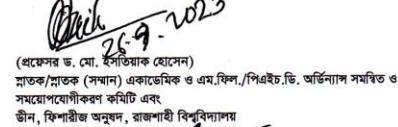 26-9-2023
(প্রফেসর ড. মো. ইসতিয়াক হোসেন)
স্নাতক/স্নাতক (সম্মান) একাডেমিক ও এম.ফিল./পিএইচ.ডি. অর্ডিন্যান্স সমন্বিত ও
সময়োপযোগীকরণ কমিটি এবং
ডীন, ফিশারীজ অনুষদ, রাজশাহী বিশ্ববিদ্যালয়